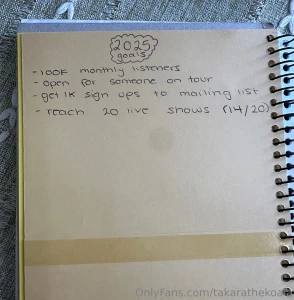 2025
goals
- 100K monthly listeners
- open for someone on tour
- get 1K sign ups to mailing list
- reach 20 live shows (14/20)